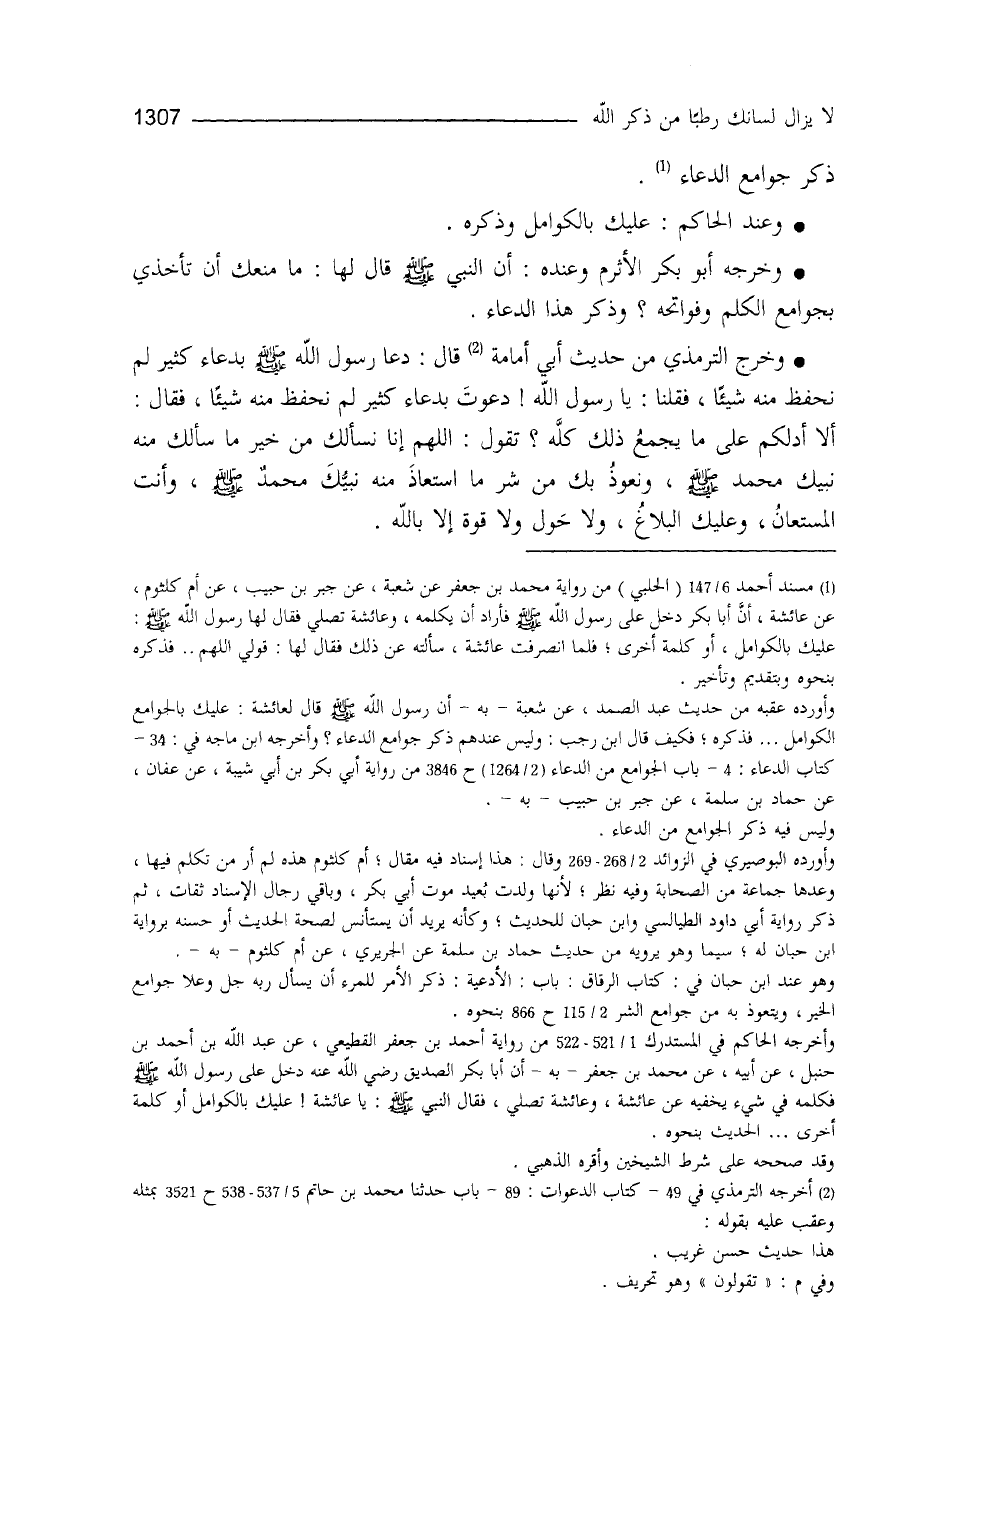 لا يزال لسانك رطبًا من ذكر اللّه 1307
ذكر جوامع الدعاء (1) .
● وعند الحاكم : عليك بالكوامل وذكره .
● وخرجه أبو بكر الأثرم وعنده : أن النبي ﷺ قال لها : ما منعك أن تأخذي
بجوامع الكلم وفواتحه ؟ وذكر هذا الدعاء .
● وخرج الترمذي من حديث أبي أمامة (2) قال : دعا رسول اللّه ﷺ بدعاء كثير لم
نحفظ منه شيئًا ، فقلنا : يا رسول اللّه ! دعوتَ بدعاء كثير لم نحفظ منه شيئًا ، فقال :
ألا أدلكم على ما يجمعُ ذلك كلَّه ؟ تقول : اللهم إنا نسألك من خير ما سألك منه
نبيك محمد ﷺ ، ونعوذُ بك من شر ما استعاذَ منه نبيُّكَ محمدٌ ﷺ ، وأنت
المستعانُ ، وعليك البلاغُ ، ولا حَول ولا قوة إلا باللّه .
(1) مسند أحمد 147/6 ( الحلبي ) من رواية محمد بن جعفر عن شعبة ، عن جبر بن حبيب ، عن أم كلثوم ،
عن عائشة ، أنَّ أبا بكر دخل على رسول اللّه ﷺ فأراد أن يكلمه ، وعائشة تصلي فقال لها رسول اللّه ﷺ :
عليك بالكوامل ، أو كلمة أخرى ؛ فلما انصرفت عائشة ، سألته عن ذلك فقال لها : قولي اللهم .. فذكره
بنحوه وبتقديم وتأخير .
وأورده عقبه من حديث عبد الصمد ، عن شعبة – به – أن رسول اللّه ﷺ قال لعائشة : عليك بالجوامع
الكوامل ... فذكره ؛ فكيف قال ابن رجب : وليس عندهم ذكر جوامع الدعاء ؟ وأخرجه ابن ماجه في : 34 –
كتاب الدعاء : 4 – باب الجوامع من الدعاء (1264/2) ح 3846 من رواية أبي بكر بن أبي شيبة ، عن عفان ،
عن حماد بن سلمة ، عن جبر بن حبيب – به – .
وليس فيه ذكر الجوامع من الدعاء .
وأورده البوصيري في الزوائد 268/2 - 269 وقال : هذا إسناد فيه مقال ؛ أم كلثوم هذه لم أر من تكلم فيها ،
وعدها جماعة من الصحابة وفيه نظر ؛ لأنها ولدت بُعيد موت أبي بكر ، وباقي رجال الإسناد ثقات ، ثم
ذكر رواية أبي داود الطيالسي وابن حبان للحديث ؛ وكأنه يريد أن يستأنس لصحة الحديث أو حسنه برواية
ابن حبان له ؛ سيما وهو يرويه من حديث حماد بن سلمة عن الجريري ، عن أم كلثوم – به – .
وهو عند ابن حبان في : كتاب الرقاق : باب : الأدعية : ذكر الأمر للمرء أن يسأل ربه جل وعلا جوامع
الخير ، ويتعوذ به من جوامع الشر 2 / 115 ح 866 بنحوه .
وأخرجه الحاكم في المستدرك 1 / 521 - 522 من رواية أحمد بن جعفر القطيعي ، عن عبد اللّه بن أحمد بن
حنبل ، عن أبيه ، عن محمد بن جعفر – به – أن أبا بكر الصديق رضي اللّه عنه دخل على رسول اللّه ﷺ
فكلمه في شيء يخفيه عن عائشة ، وعائشة تصلي ، فقال النبي ﷺ : يا عائشة ! عليك بالكوامل أو كلمة
أخرى ... الحديث بنحوه .
وقد صححه على شرط الشيخين وأقره الذهبي .
(2) أخرجه الترمذي في 49 – كتاب الدعوات : 89 – باب حدثنا محمد بن حاتم 5 / 537 - 538 ح 3521 بمثله
وعقب عليه بقوله :
هذا حديث حسن غريب .
وفي م : « تقولون » وهو تحريف .